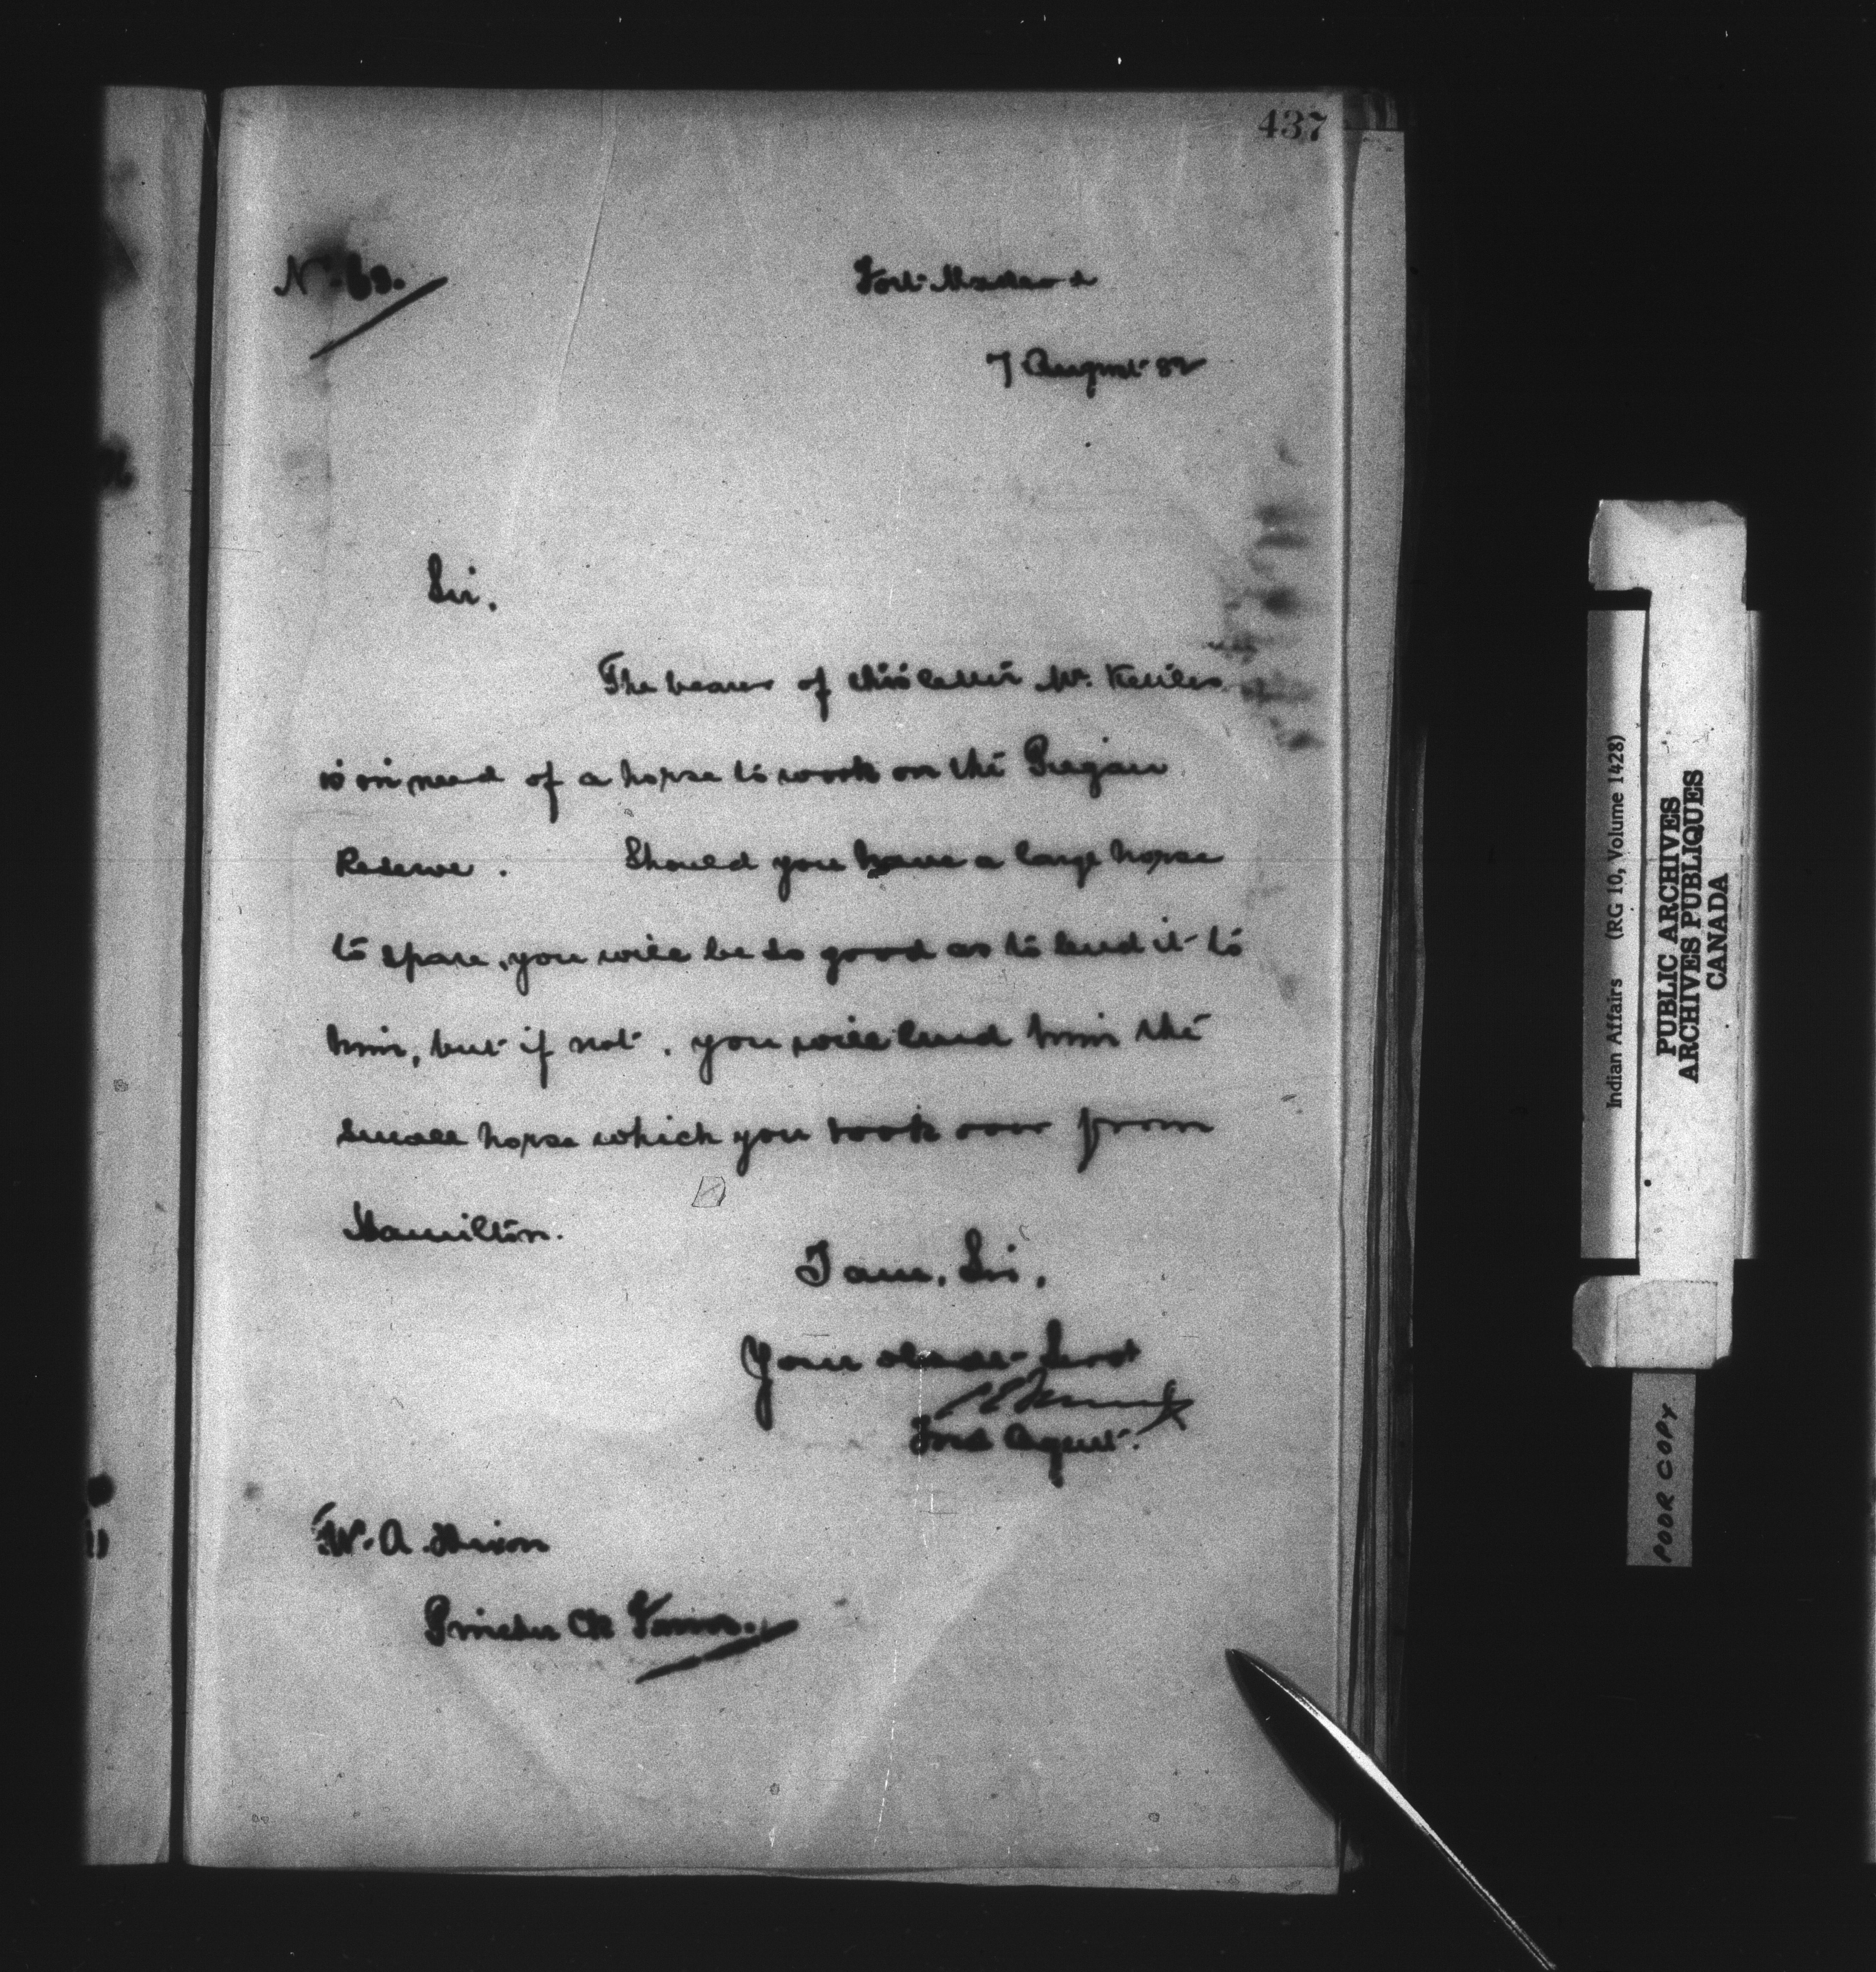 437
No. 63.
Fort Macleod
7 August 82
Sir.
The bearer of this letter Mr. Kettles
is in need of a horse to work on the Piegan
Reserve. Should you have a large horse
to spare, you will be so good as to lend it to
him, but if not, you will lend him the
small horse which you took over from
Hamilton.
I am, Sir,
Your obedt Servt
Ind Agent.
W. A.
Pincher Ck Farm.
Indian Affairs (RG 10, Volume 1428)
PUBLIC ARCHIVES
ARCHIVES PUBLIQUES
CANADA
POOR COPY